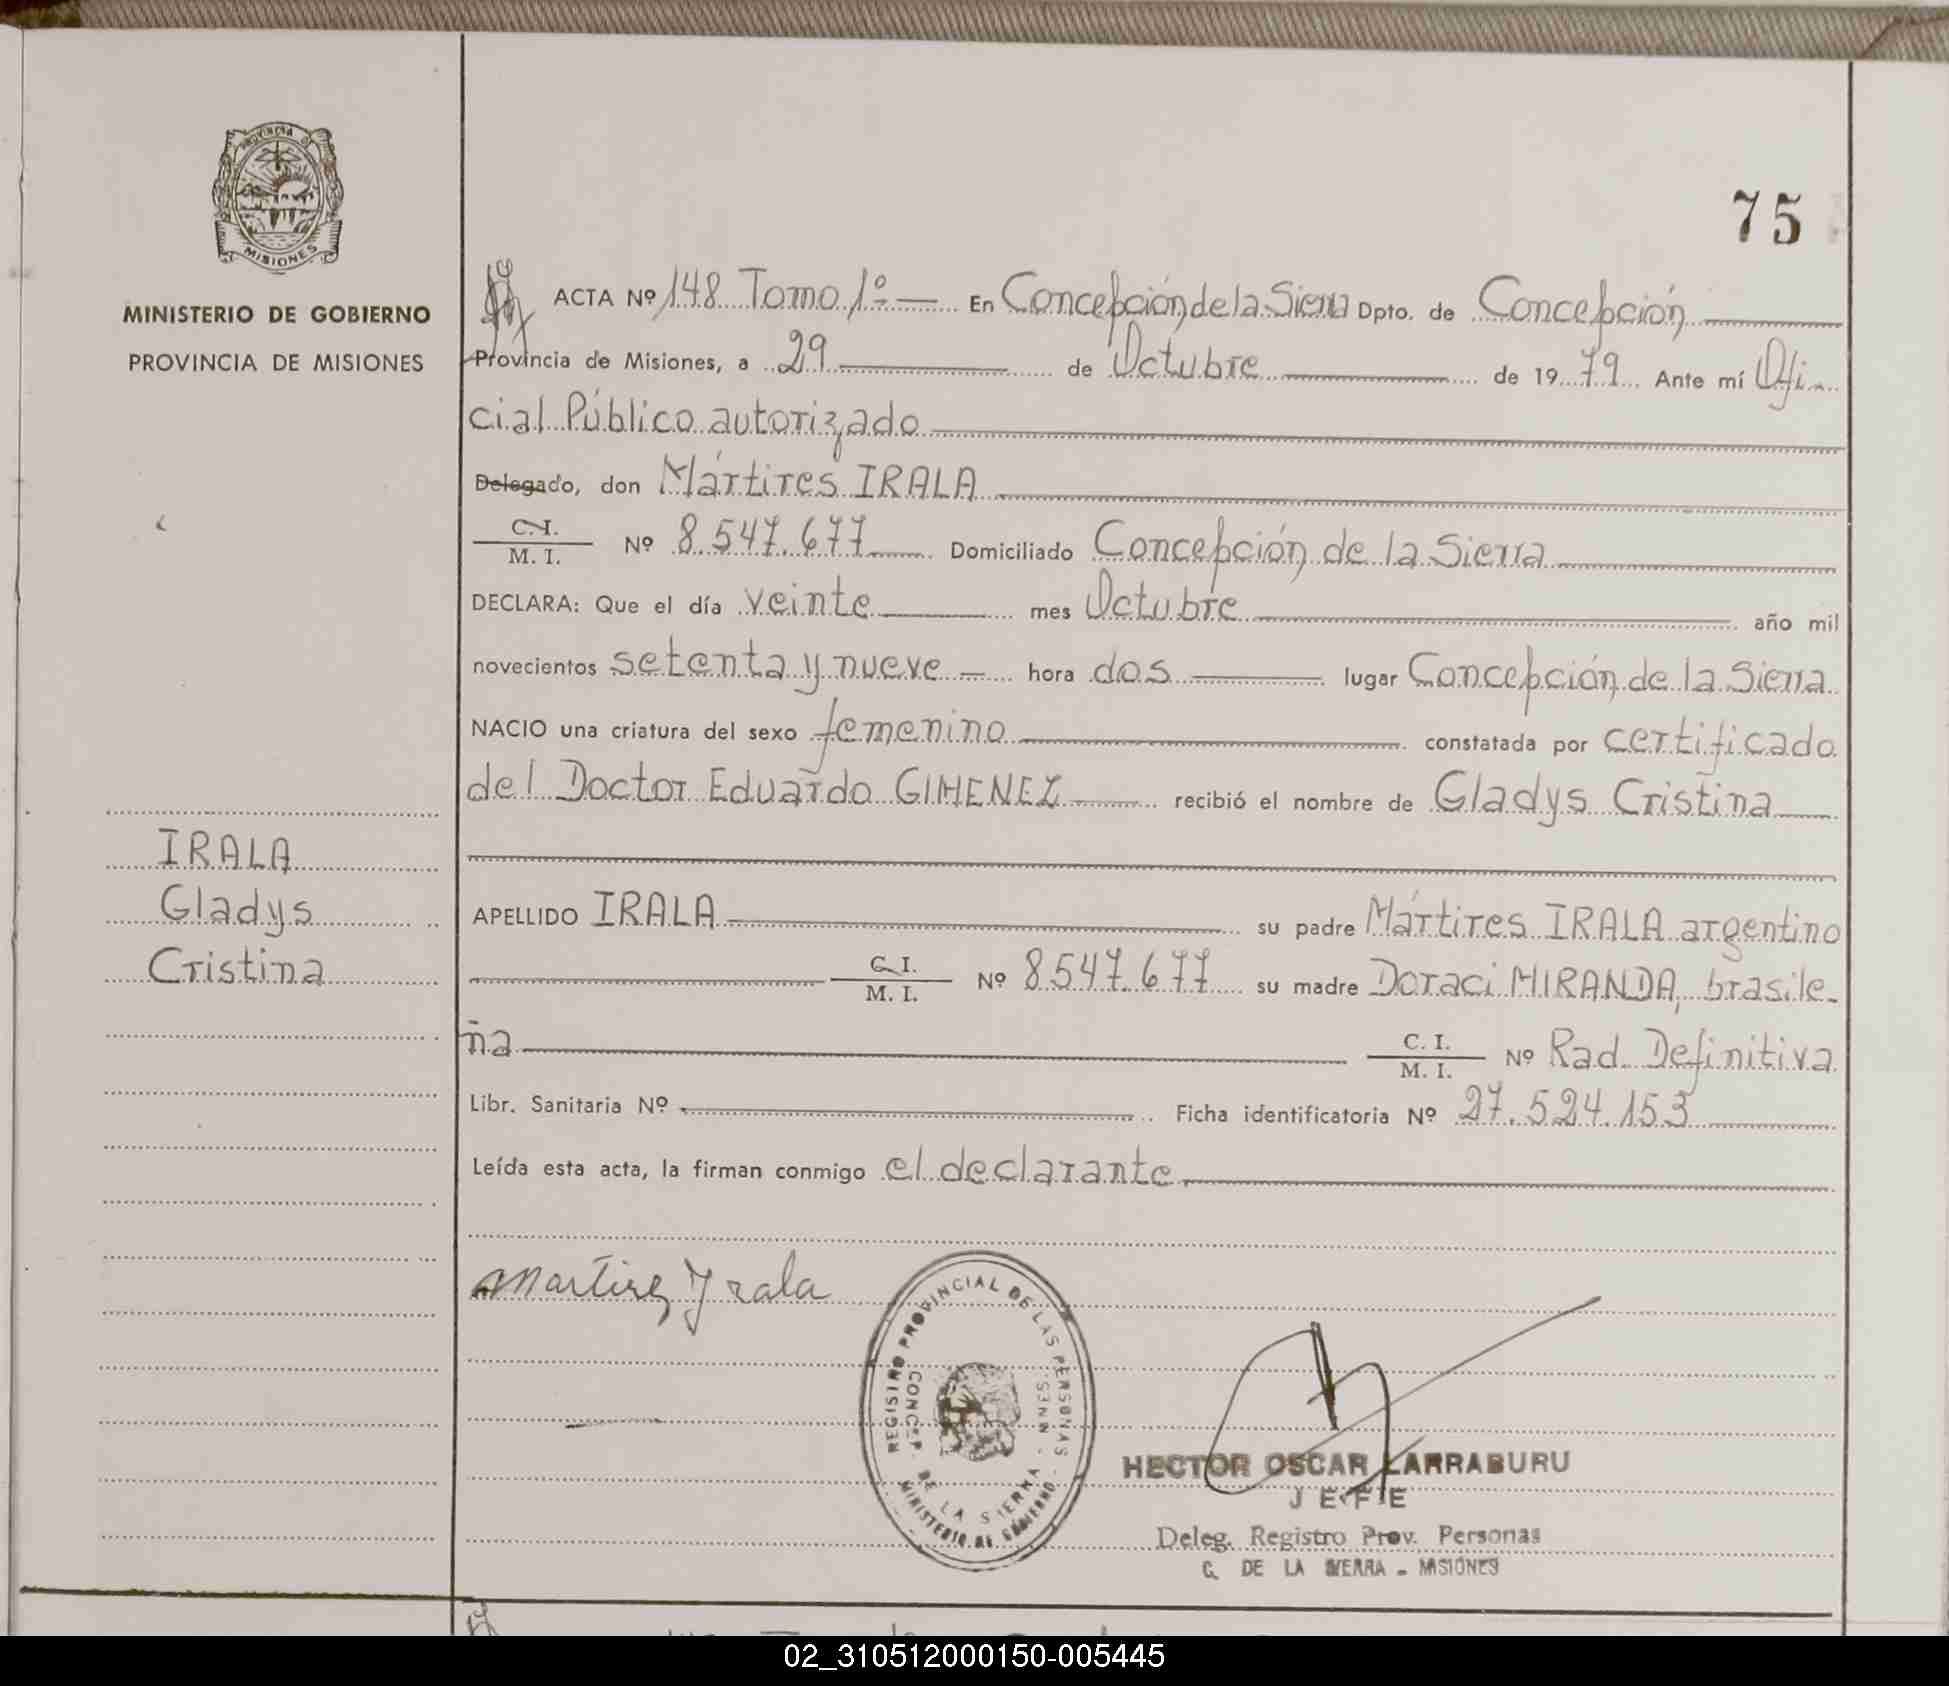 PROVINCIA DE
MISIONES
MINISTERIO DE GOBIERNO
PROVINCIA DE MISIONES
75
ACTA Nº 148 Tomo 1º — En Concepción de la Sierra Dpto. de Concepción
Provincia de Misiones, a 29 de Octubre de 1979 Ante mí Ofi-
cial Público autorizado
Delegado, don Mártires IRALA
C. I.
M. I. Nº 8.547.677 Domiciliado Concepción de la Sierra
DECLARA: Que el día veinte mes Octubre año mil
novecientos setenta y nueve — hora dos lugar Concepción de la Sierra
NACIO una criatura del sexo femenino constatada por certificado
del Doctor Eduardo GIMENEZ recibió el nombre de Gladys Cristina
IRALA
Gladys
Cristina
APELLIDO IRALA su padre Mártires IRALA argentino
C. I.
M. I. Nº 8.547.677 su madre Doraci MIRANDA, brasile-
ña C. I.
M. I. Nº Rad. Definitiva
Libr. Sanitaria Nº Ficha identificatoria Nº 27.524.153
Leída esta acta, la firman conmigo el declarante
Martires Yrala
REGISTRO PROVINCIAL DE LAS PERSONAS
CONCEP. DE LA SIERRA - MNES.
MINISTERIO DE GOBIERNO
HECTOR OSCAR LARRABURU
JEFE
Deleg. Registro Prov. Personas
C. DE LA SIERRA - MISIONES
02_310512000150-005445